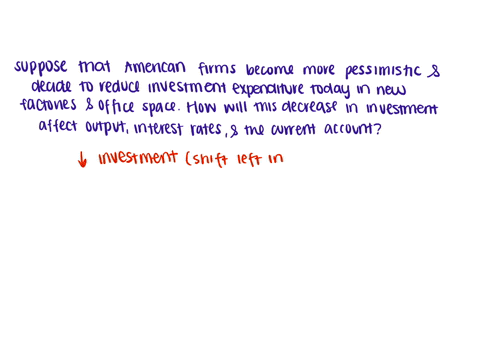 suppose that American firms become more pessimistic &
decide to reduce investment expenditure today in new
factories & office space. How will this decrease in investment
affect output, interest rates, & the current account?
↓ investment (shift left in